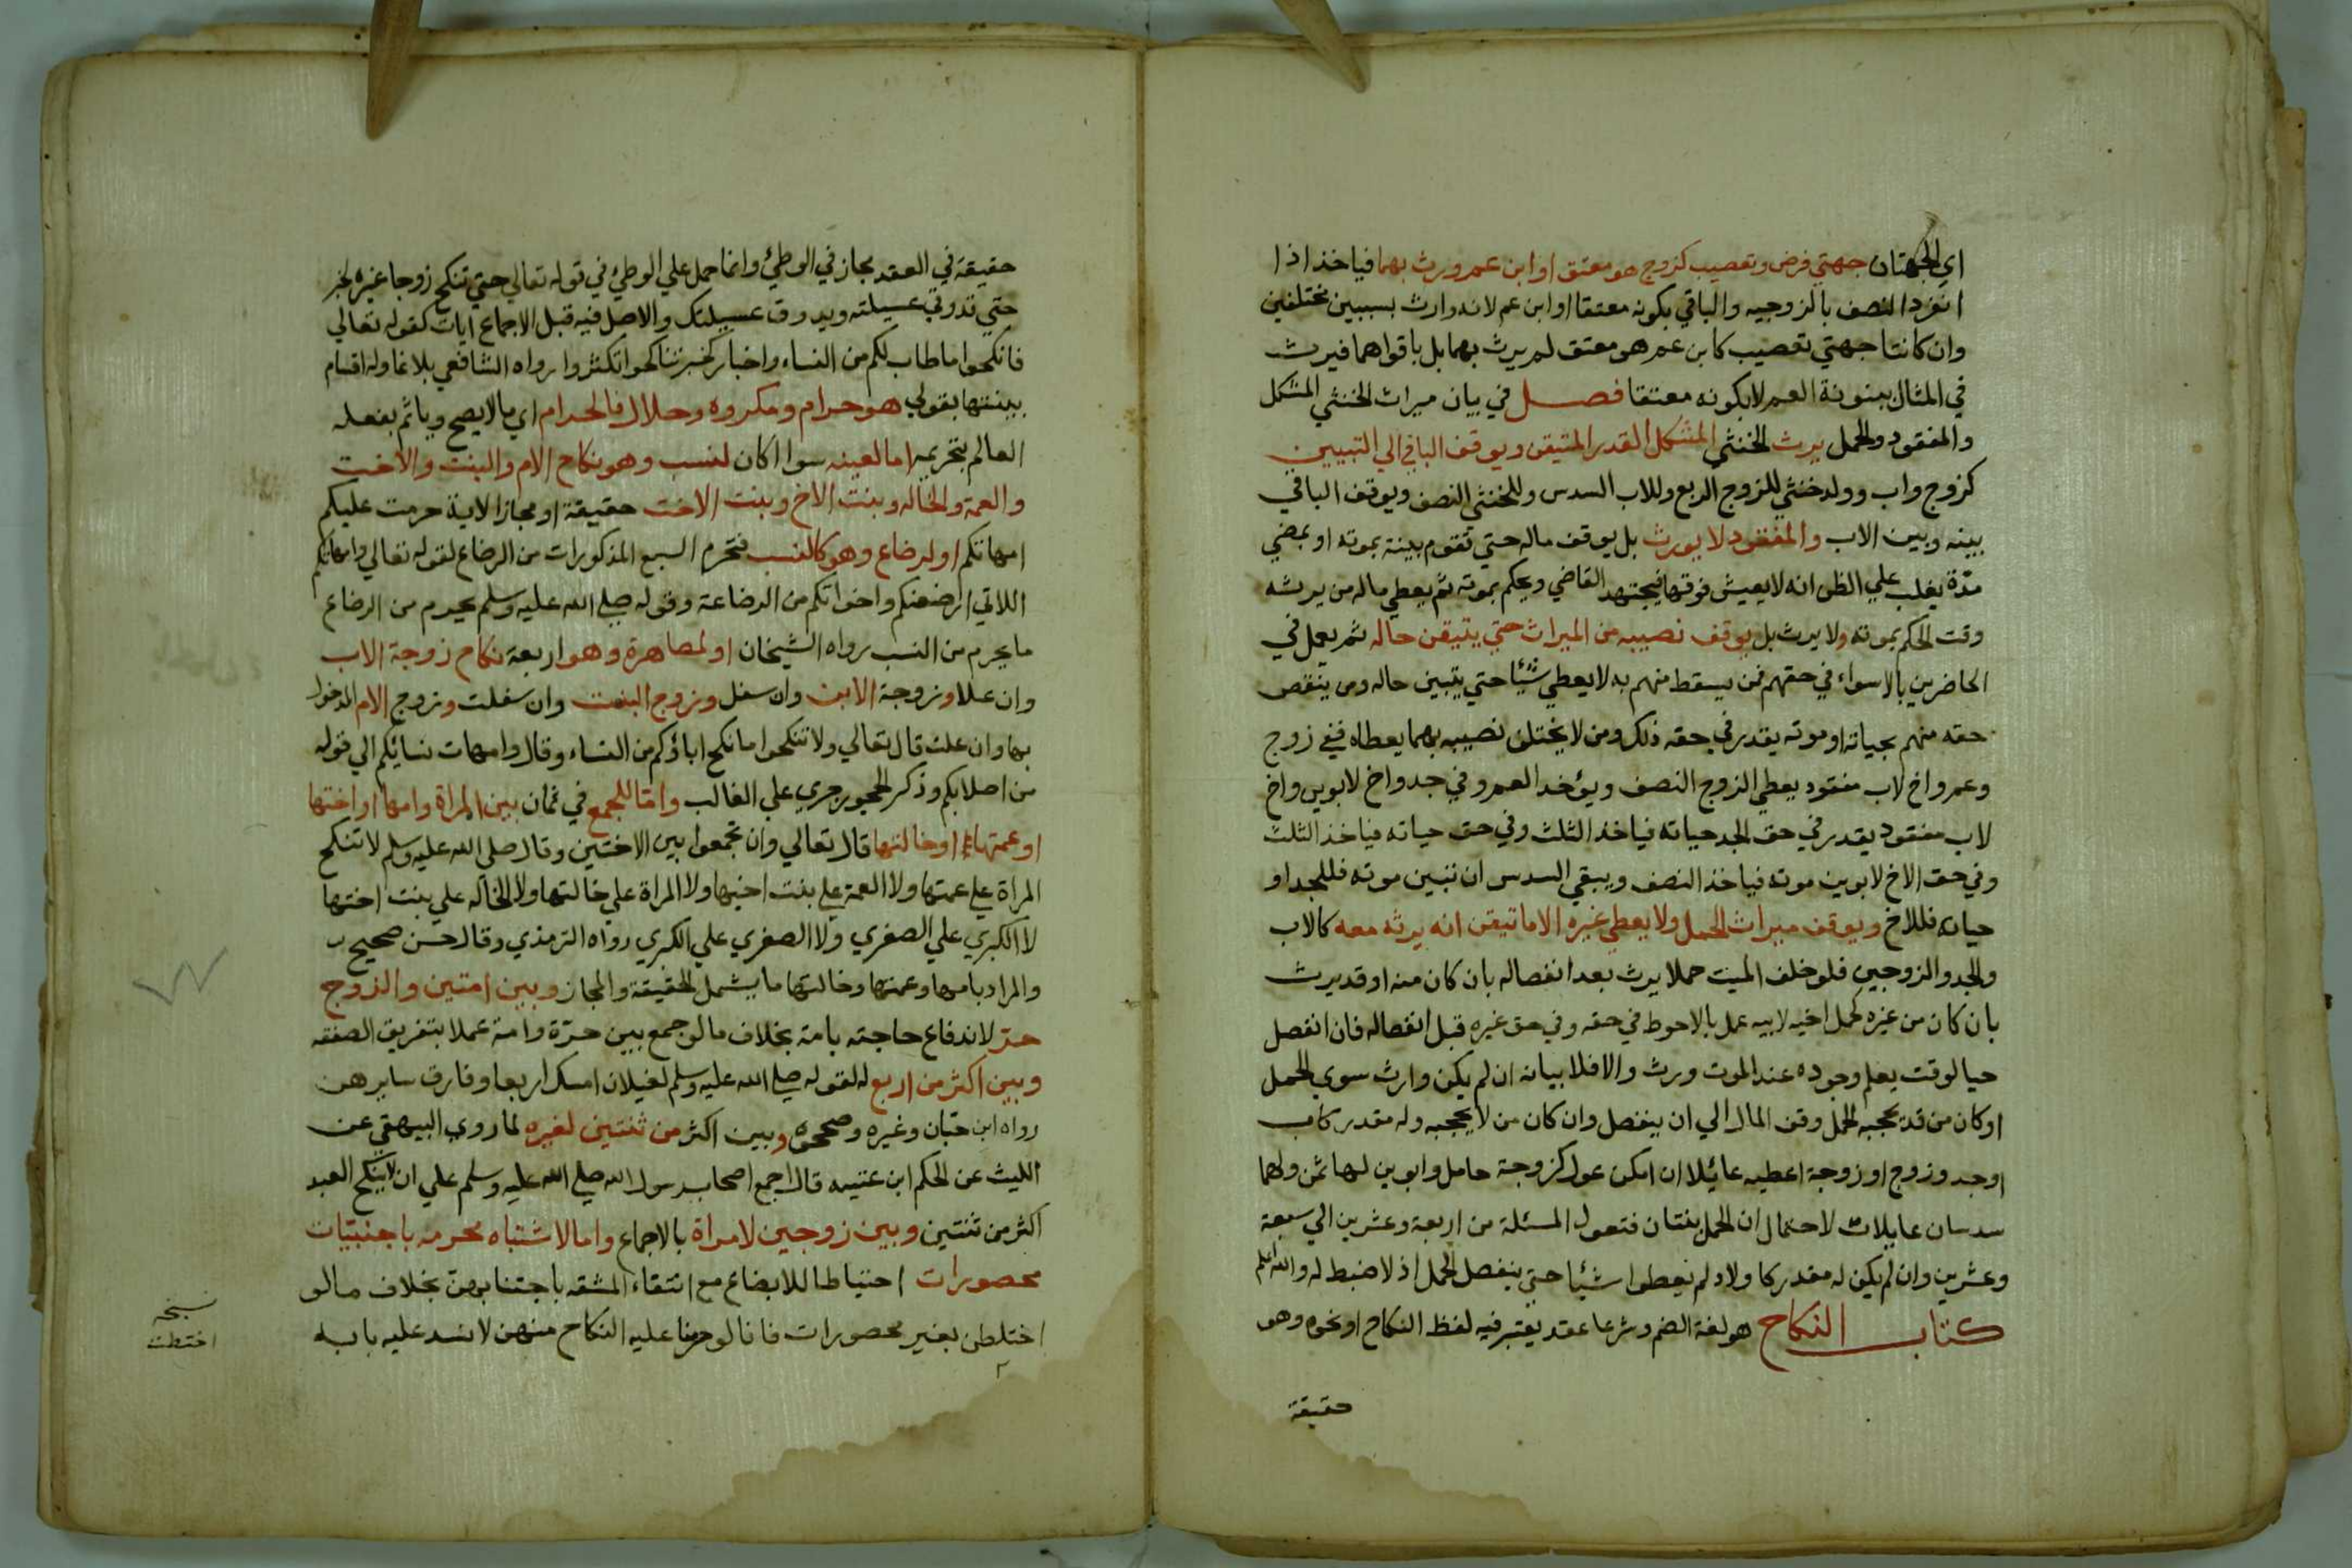 اي الجهتان جهتي فرض وتعصيب كزوج هو معتق او ابن عم ورث بهما فياخذ اذا
انفرد النصف بالزوجيه والباقي بكونه معتقا او ابن عم لانه وارث بسببين مختلفين
وان كانتا جهتي تعصيب كابن عم هو معتق لم يرث بهما بل باقواهما فيرث
في المثال ببنونة العم لا بكونه معتقا فصل في بيان ميراث الخنثي المشكل
والمفقود والحمل يرث الخنثي المشكل القدر المتيقن ويوقف الباقي الي التبيين
كزوج واب وولد خنثي للزوج الربع وللاب السدس وللخنثي النصف ويوقف الباقي
بينه وبين الاب والمفقود لا يورث بل يوقف ماله حتي تقوم بينة بموته او بمضي
مدّة يغلب علي الظن انه لا يعيش فوقها فيجتهد القاضي ويحكم بموته ثم يعطي ماله من يرثه
وقت الحكم بموته ولا يرث بل يوقف نصيبه من الميراث حتي يتيقن حاله ثم يعمل في
الحاضرين بالاسواء في حقهم فمن يسقط منهم به لا يعطي شيئا حتي يتبين حاله ومن ينقص
حقه منهم بحياته او موته يقدر في حقه ذلك ومن لا يختلف نصيبه بهما يعطاه ففي زوج
وعم واخ لاب مفقود يعطي الزوج النصف ويؤخر العم وفي جد واخ لابوين واخ
لاب مفقود يقدر في حق الجد حياته فياخذ الثلث وفي حق حياته فياخذ الثلث
وفي حق الاخ لابوين موته فياخذ النصف ويبقي السدس ان تبين موته فللجد او
حياته فللاخ ويوقف ميراث الحمل ولا يعطي غيره الا ما تيقن انه يرثه معه كالاب
والجد والزوجين فلو خلف الميت حملا يرث بعد انفصاله بان كان منه او قد يرث
بان كان من غيره كحمل اخيه لابيه عمل بالاحوط في حقه وفي حق غيره قبل انفصاله فان انفصل
حيا لوقت يعلم وجوده عند الموت ورث والا فلا بيانه ان لم يكن وارث سوي الحمل
او كان من قد يحجبه الحمل وقف المال الي ان ينفصل وان كان من لا يحجبه وله مقدر كاب
او جد وزوج او زوجة اعطيه عائلا ان امكن عول كزوجة حامل وابوين لها ثمن ولهما
سدسان عايلات لاحتمال ان الحمل بنتان فتعول المسئلة من اربعة وعشرين الي سبعة
وعشرين وان لم يكن له مقدر كاولاد لم يعطوا شيئا حتي ينفصل الحمل اذ لا ضبط له والله اعلم
كتاب النكاح هو لغة الضم وشرعا عقد يعتبر فيه لفظ النكاح او نحوه وهو
حقيقة
حقيقة في العقد مجاز في الوطئ وانما حمل علي الوطئ في قوله تعالي حتي تنكح زوجا غيره لخبر
حتي تذوقي عسيلته ويذوق عسيلتك والاصل فيه قبل الاجماع ايات كقوله تعالي
فانكحوا ما طاب لكم من النساء واخبار كخبر تناكحوا تكثروا رواه الشافعي بلاغا وله اقسام
بينتها بقولي هو حرام ومكروه وحلال فالحرام اي ما لا يصح وياثم بفعله
العالم بتحريمه اما لعينه سوا اكان لنسب وهو نكاح الام والبنت والاخت
والعمة والخاله وبنت الاخ وبنت الاخت حقيقة او مجازا لاية حرمت عليكم
امهاتكم او لرضاع وهو كالنسب فتحرم السبع المذكورات من الرضاع لقوله تعالي وامهاتكم
اللاتي ارضعنكم واخواتكم من الرضاعة وقوله صلي الله عليه وسلم يحرم من الرضاع
ما يحرم من النسب رواه الشيخان او لمصاهرة وهو اربعة نكاح زوجة الاب
وان علا وزوجة الابن وان سفل وزوج البنت وان سفلت وزوج الام المدخول
بها وان علت قال تعالي ولا تنكحوا ما نكح اباؤكم من النساء وقال وامهات نسائكم الي قوله
من اصلابكم وذكر الحجور جري علي الغالب واما للجمع في ثمان بين المراة وامها او اختها
او عمتها او خالتها قال تعالي وان تجمعوا بين الاختين وقال صلي الله عليه وسلم لا تنكح
المراة علي عمتها ولا العمة علي بنت اخيها ولا المراة علي خالتها ولا الخاله علي بنت اختها
لا الكبري علي الصغري ولا الصغري علي الكبري رواه الترمذي وقال حسن صحيح
والمراد بامها وعمتها وخالتها ما يشمل الحقيقة والمجاز وبين امتين والزوج
حرّ لاندفاع حاجته بامة بخلاف ما لو جمع بين حرّة وامة عملا بتفريق الصفقه
وبين اكثر من اربع له لقوله صلي الله عليه وسلم لغيلان امسك اربعا وفارق سايرهن
رواه ابن حبّان وغيره وصححوه وبين اكثر من ثنتين لغيره لما روي البيهقي عن
الليث عن الحكم ابن عتيبه قال اجمع اصحاب رسول الله صلي الله عليه وسلم علي ان لا ينكح العبد
اكثر من ثنتين وبين زوجين لامراة بالاجماع واما الاشتباه محرمه باجنبيّات
محصورات احتياطا للابضاع مع انتفاء المشقه باجتنابهن بخلاف ما لو
اختلطن بغير محصورات فانا لو حرمنا عليه النكاح منهن لانسد عليه بابه
نسخه
اختلطت